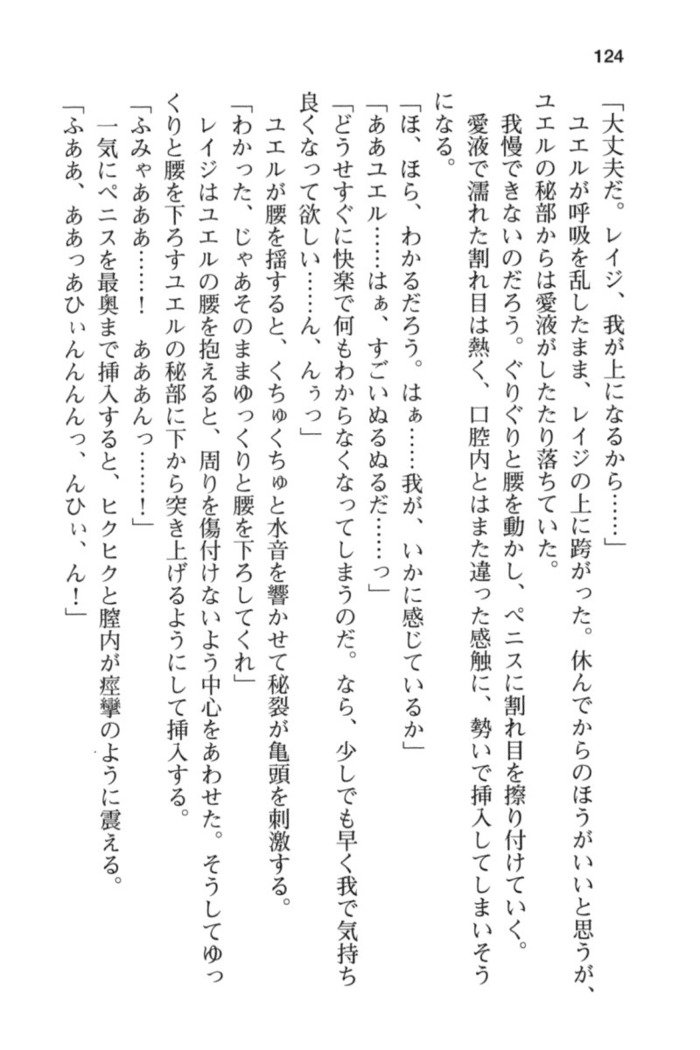 124
「大丈夫だ。レイジ、我が上になるから……」
　ユエルが呼吸を乱したまま、レイジの上に跨がった。休んでからのほうがいいと思うが、
ユエルの秘部からは愛液がしたたり落ちていた。
　我慢できないのだろう。ぐりぐりと腰を動かし、ペニスに割れ目を擦り付けていく。
　愛液で濡れた割れ目は熱く、口腔内とはまた違った感触に、勢いで挿入してしまいそう
になる。
「ほ、ほら、わかるだろう。はぁ……我が、いかに感じているか」
「ああユエル……はぁ、すごいぬるぬるだ……っ」
「どうせすぐに快楽で何もわからなくなってしまうのだ。なら、少しでも早く我で気持ち
良くなって欲しい……ん、んぅっ」
　ユエルが腰を揺すると、くちゅくちゅと水音を響かせて秘裂が亀頭を刺激する。
「わかった、じゃあそのままゆっくりと腰を下ろしてくれ」
　レイジはユエルの腰を抱えると、周りを傷付けないよう中心をあわせた。そうしてゆっ
くりと腰を下ろすユエルの秘部に下から突き上げるようにして挿入する。
「ふみゃあああ……！　あああんっ……！」
　一気にペニスを最奥まで挿入すると、ヒクヒクと膣内が痙攣のように震える。
「ふああ、ああっあひぃんんんんっ、んひぃ、ん！」